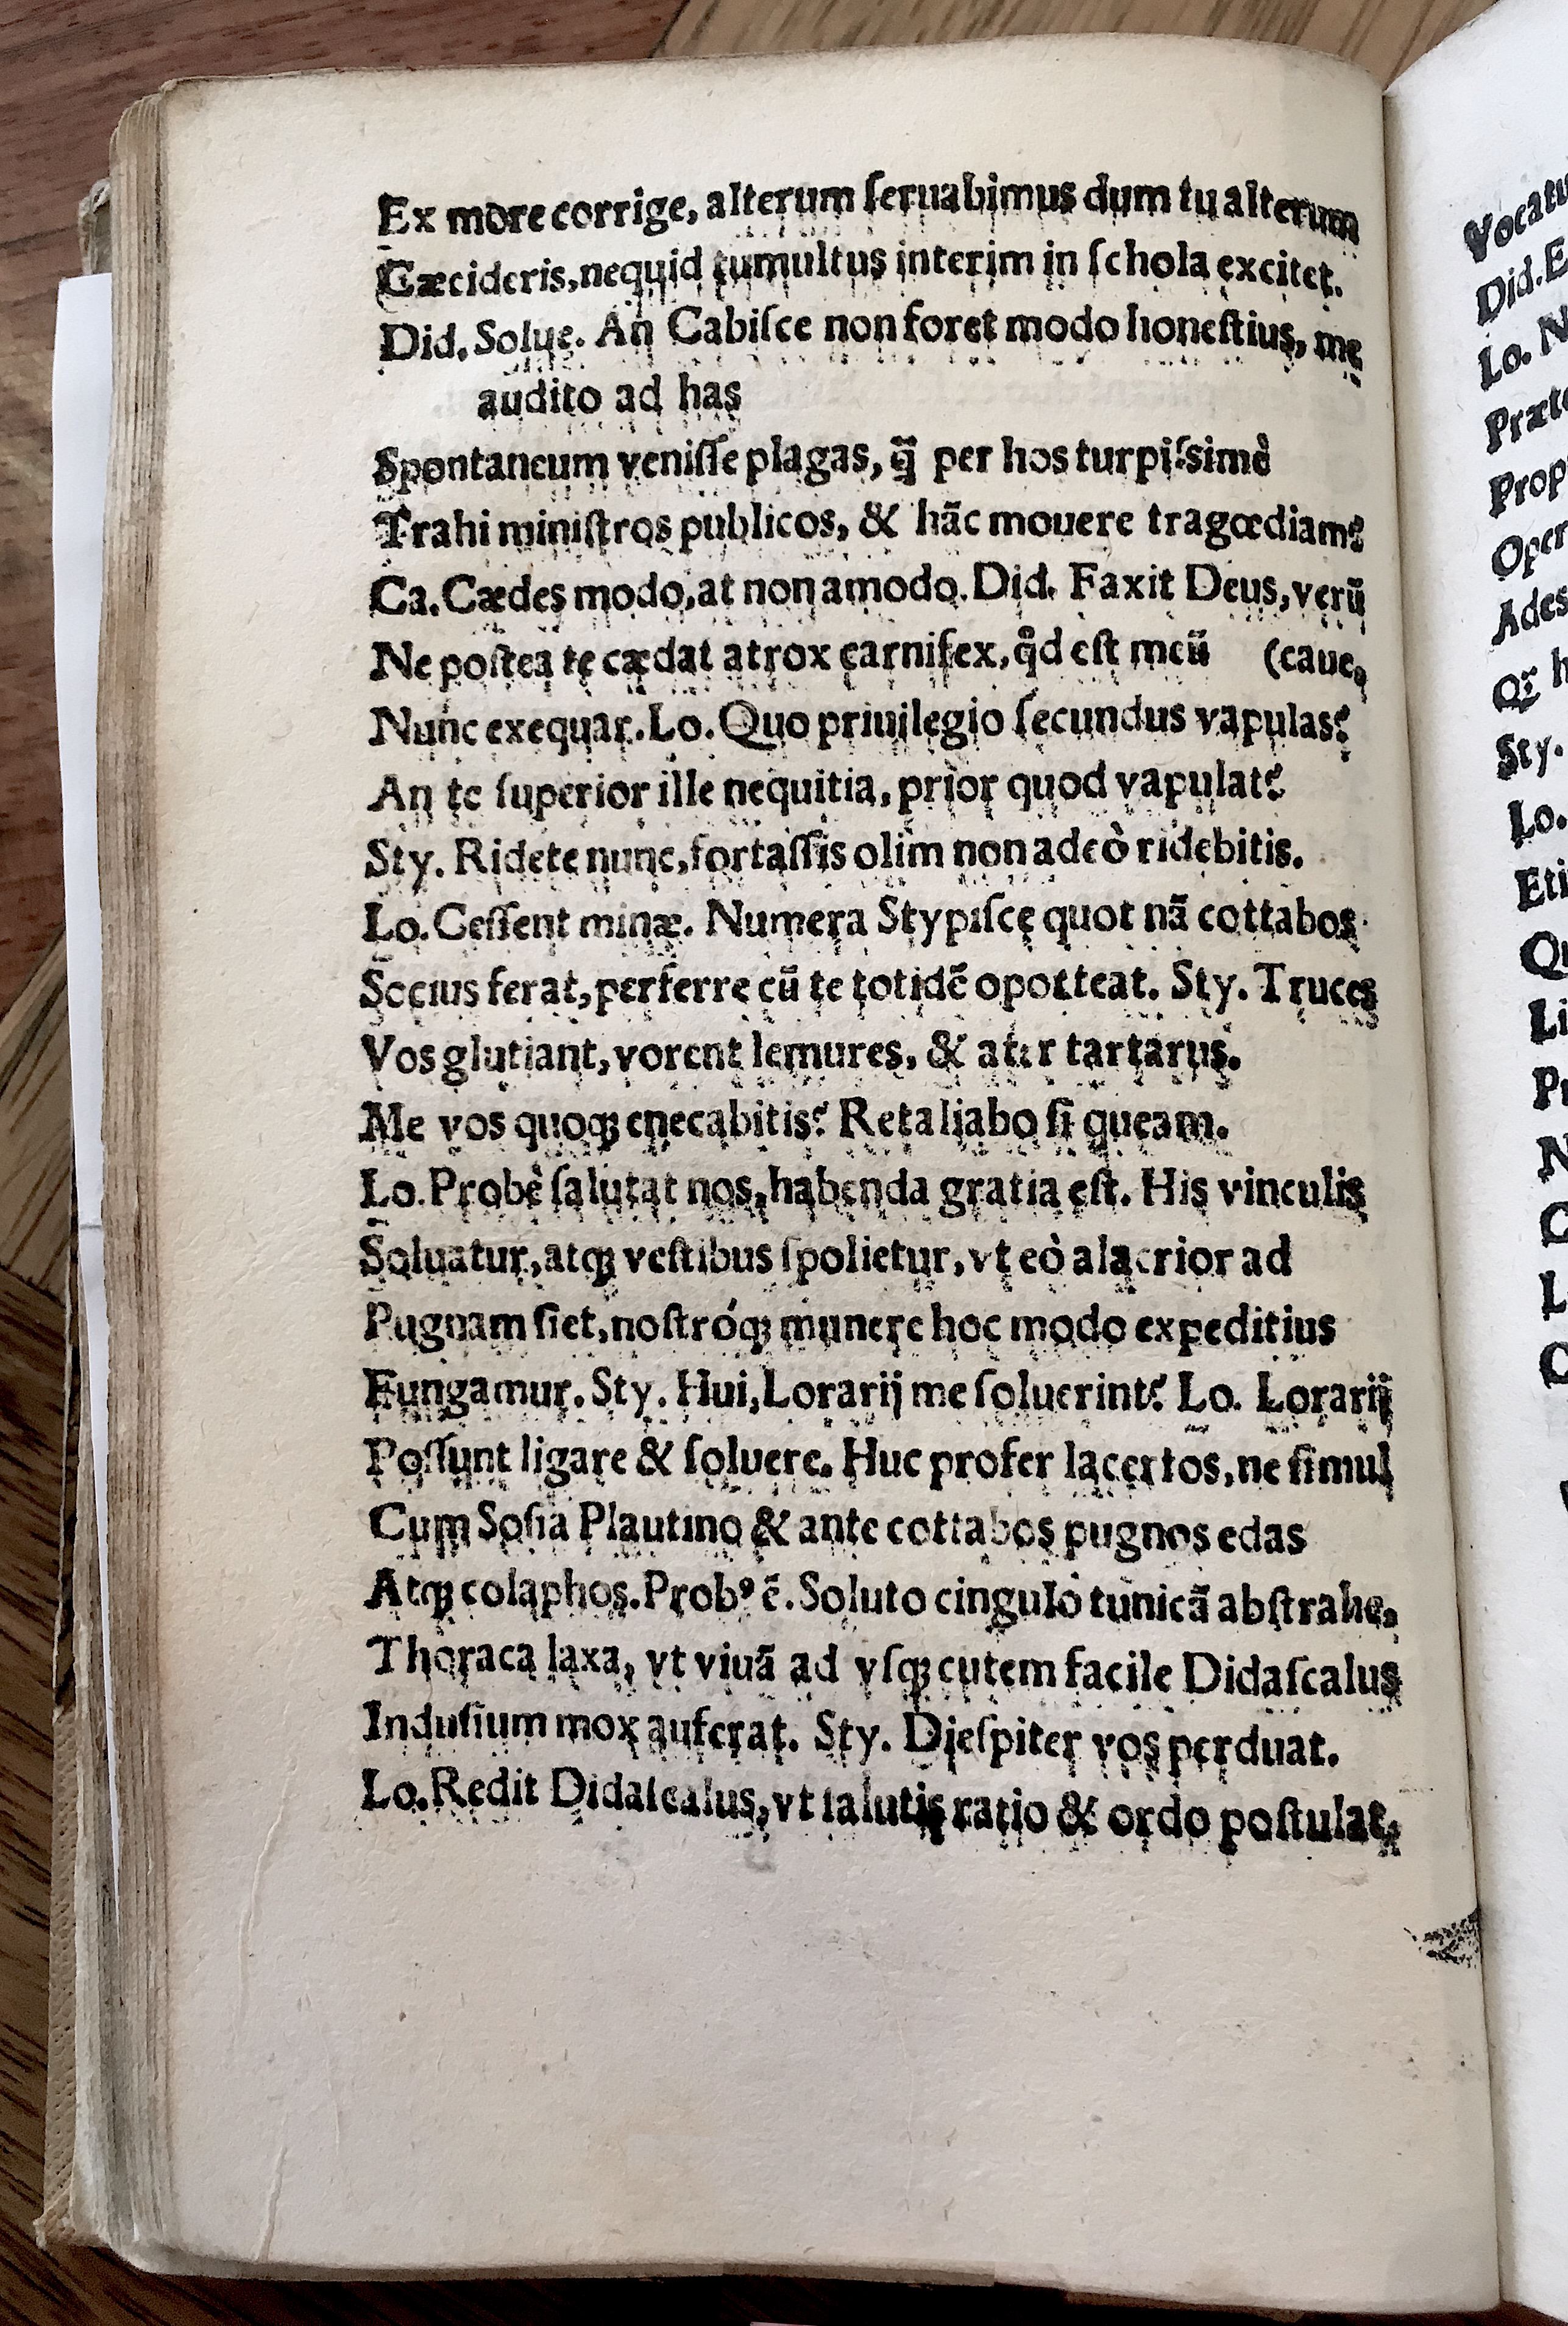 Ex more corrige, alterum ſeruabimus dum tu alterum
Cæcideris, nequid tumultus interim in ſchola excitet.
Did. Solue. An Cabiſce non foret modo honeſtius, me
audito ad has
Spontaneum veniſſe plagas, q̃ per hos turpiſsimè
Trahi miniſtros publicos, & hãc mouere tragœdiam?
Ca. Cædes modo, at non amodo. Did. Faxit Deus, verũ
Ne poſtea te cædat atrox carnifex, qd̊ eſt meũ (caue,
Nunc exequar. Lo. Quo priuilegio ſecundus vapulas?
An te ſuperior ille nequitia, prior quod vapulat?
Sty. Ridete nunc, fortaſſis olim non adeò ridebitis.
Lo. Ceſſent minæ. Numera Stypiſce quot nã cottabos
Socius ferat, perferre cũ te totidẽ opotteat. Sty. Truces
Vos glutiant, vorent lemures, & ater tartarus.
Me vos quoqꝫ enecabitis? Retaliabo ſi queam.
Lo. Probè ſalutat nos, habenda gratia eſt. His vinculis
Soluatur, atqꝫ veſtibus ſpolietur, vt eò alacrior ad
Pugnam ſiet, noſtróqꝫ munere hoc modo expeditius
Fungamur. Sty. Hui, Lorarij me ſoluerint? Lo. Lorarij
Poſſunt ligare & ſoluere. Huc profer lacertos, ne ſimul
Cum Soſia Plautino & ante cottabos pugnos edas
Atqꝫ colaphos. Probꝰ ẽ. Soluto cingulo tunicã abſtrahe,
Thoraca laxa, vt viuã ad vſqꝫ cutem facile Didaſcalus
Induſium mox auferat. Sty. Dieſpiter vos perduat.
Lo. Redit Didaſcalus, vt ſalutis ratio & ordo poſtulat,
Vocatu
Did. E
Lo. N
Præte
Prop
Oper
Ades
Sty.
Lo.
Eti
Qu
Li
Pr
N
C
L
C